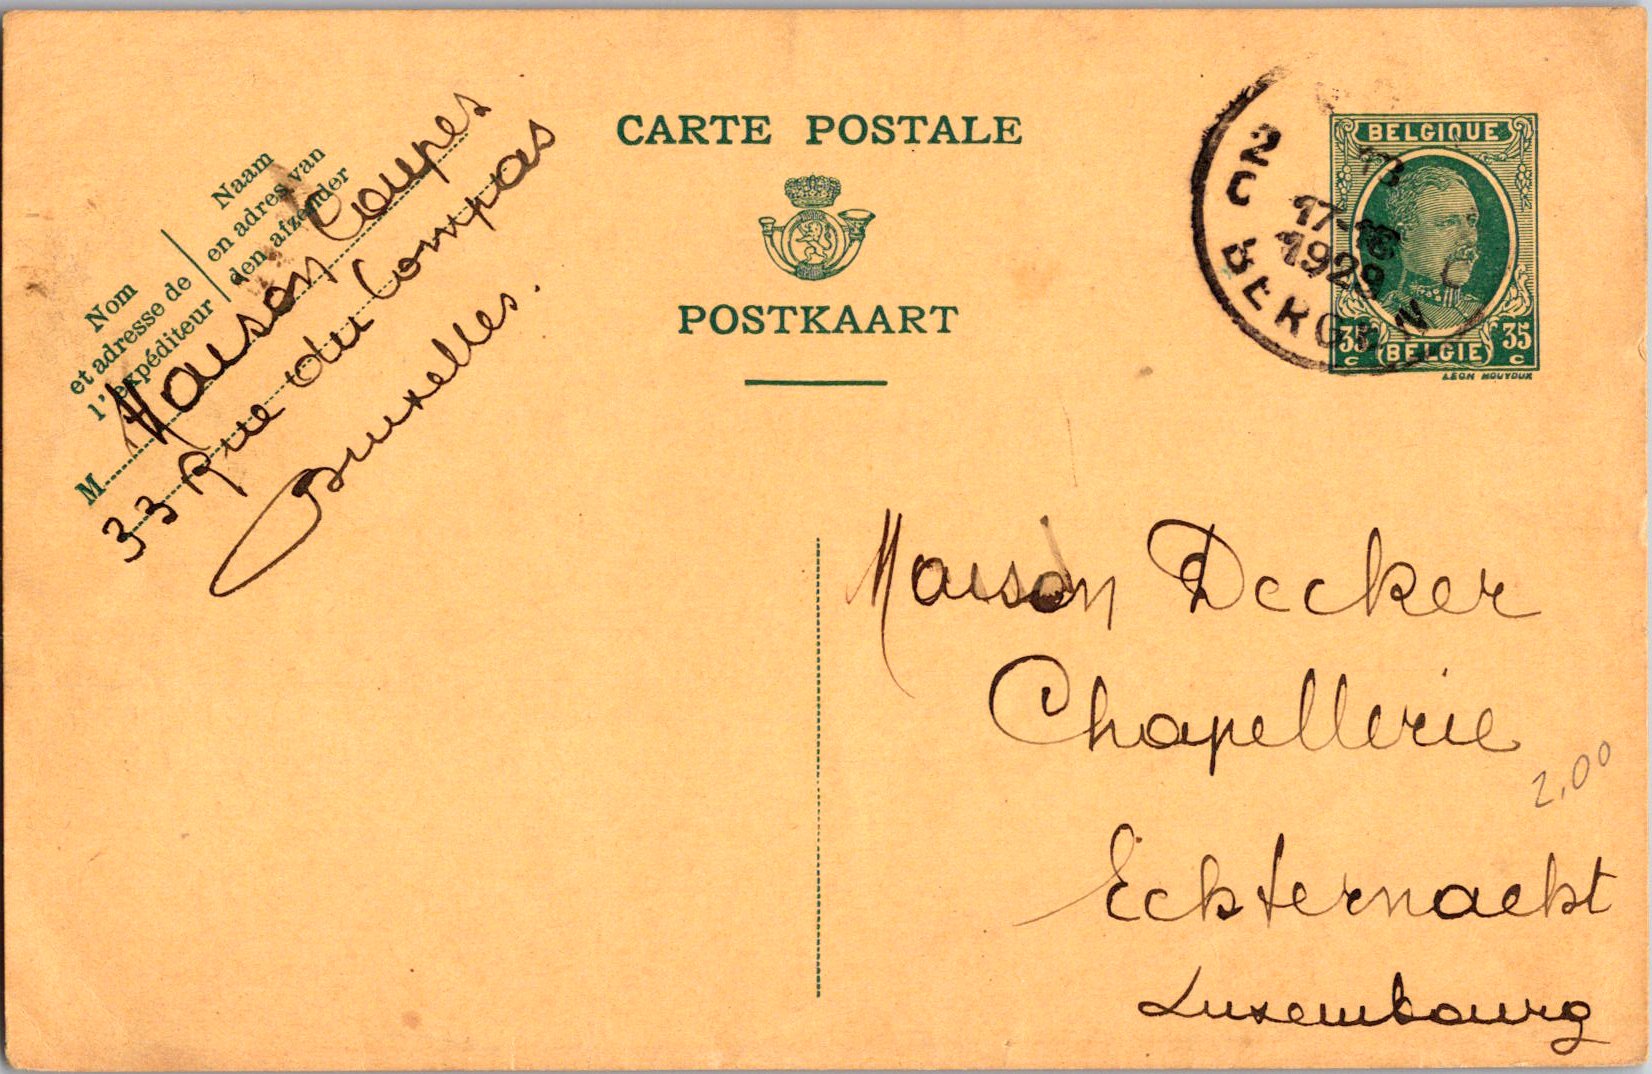 CARTE POSTALE
POSTKAART
Nom
et adresse de
l'expéditeur
Naam
en adres van
den afzender
M Maison Coupez
33 Rue du Compas
Bruxelles.
2C BERGEN C
17-18
1929
BELGIQUE
35 c 35 c
BELGIE
LEON HOUYOUX
Maison Decker
Chapellerie
Echternacht
Luxembourg
2,00